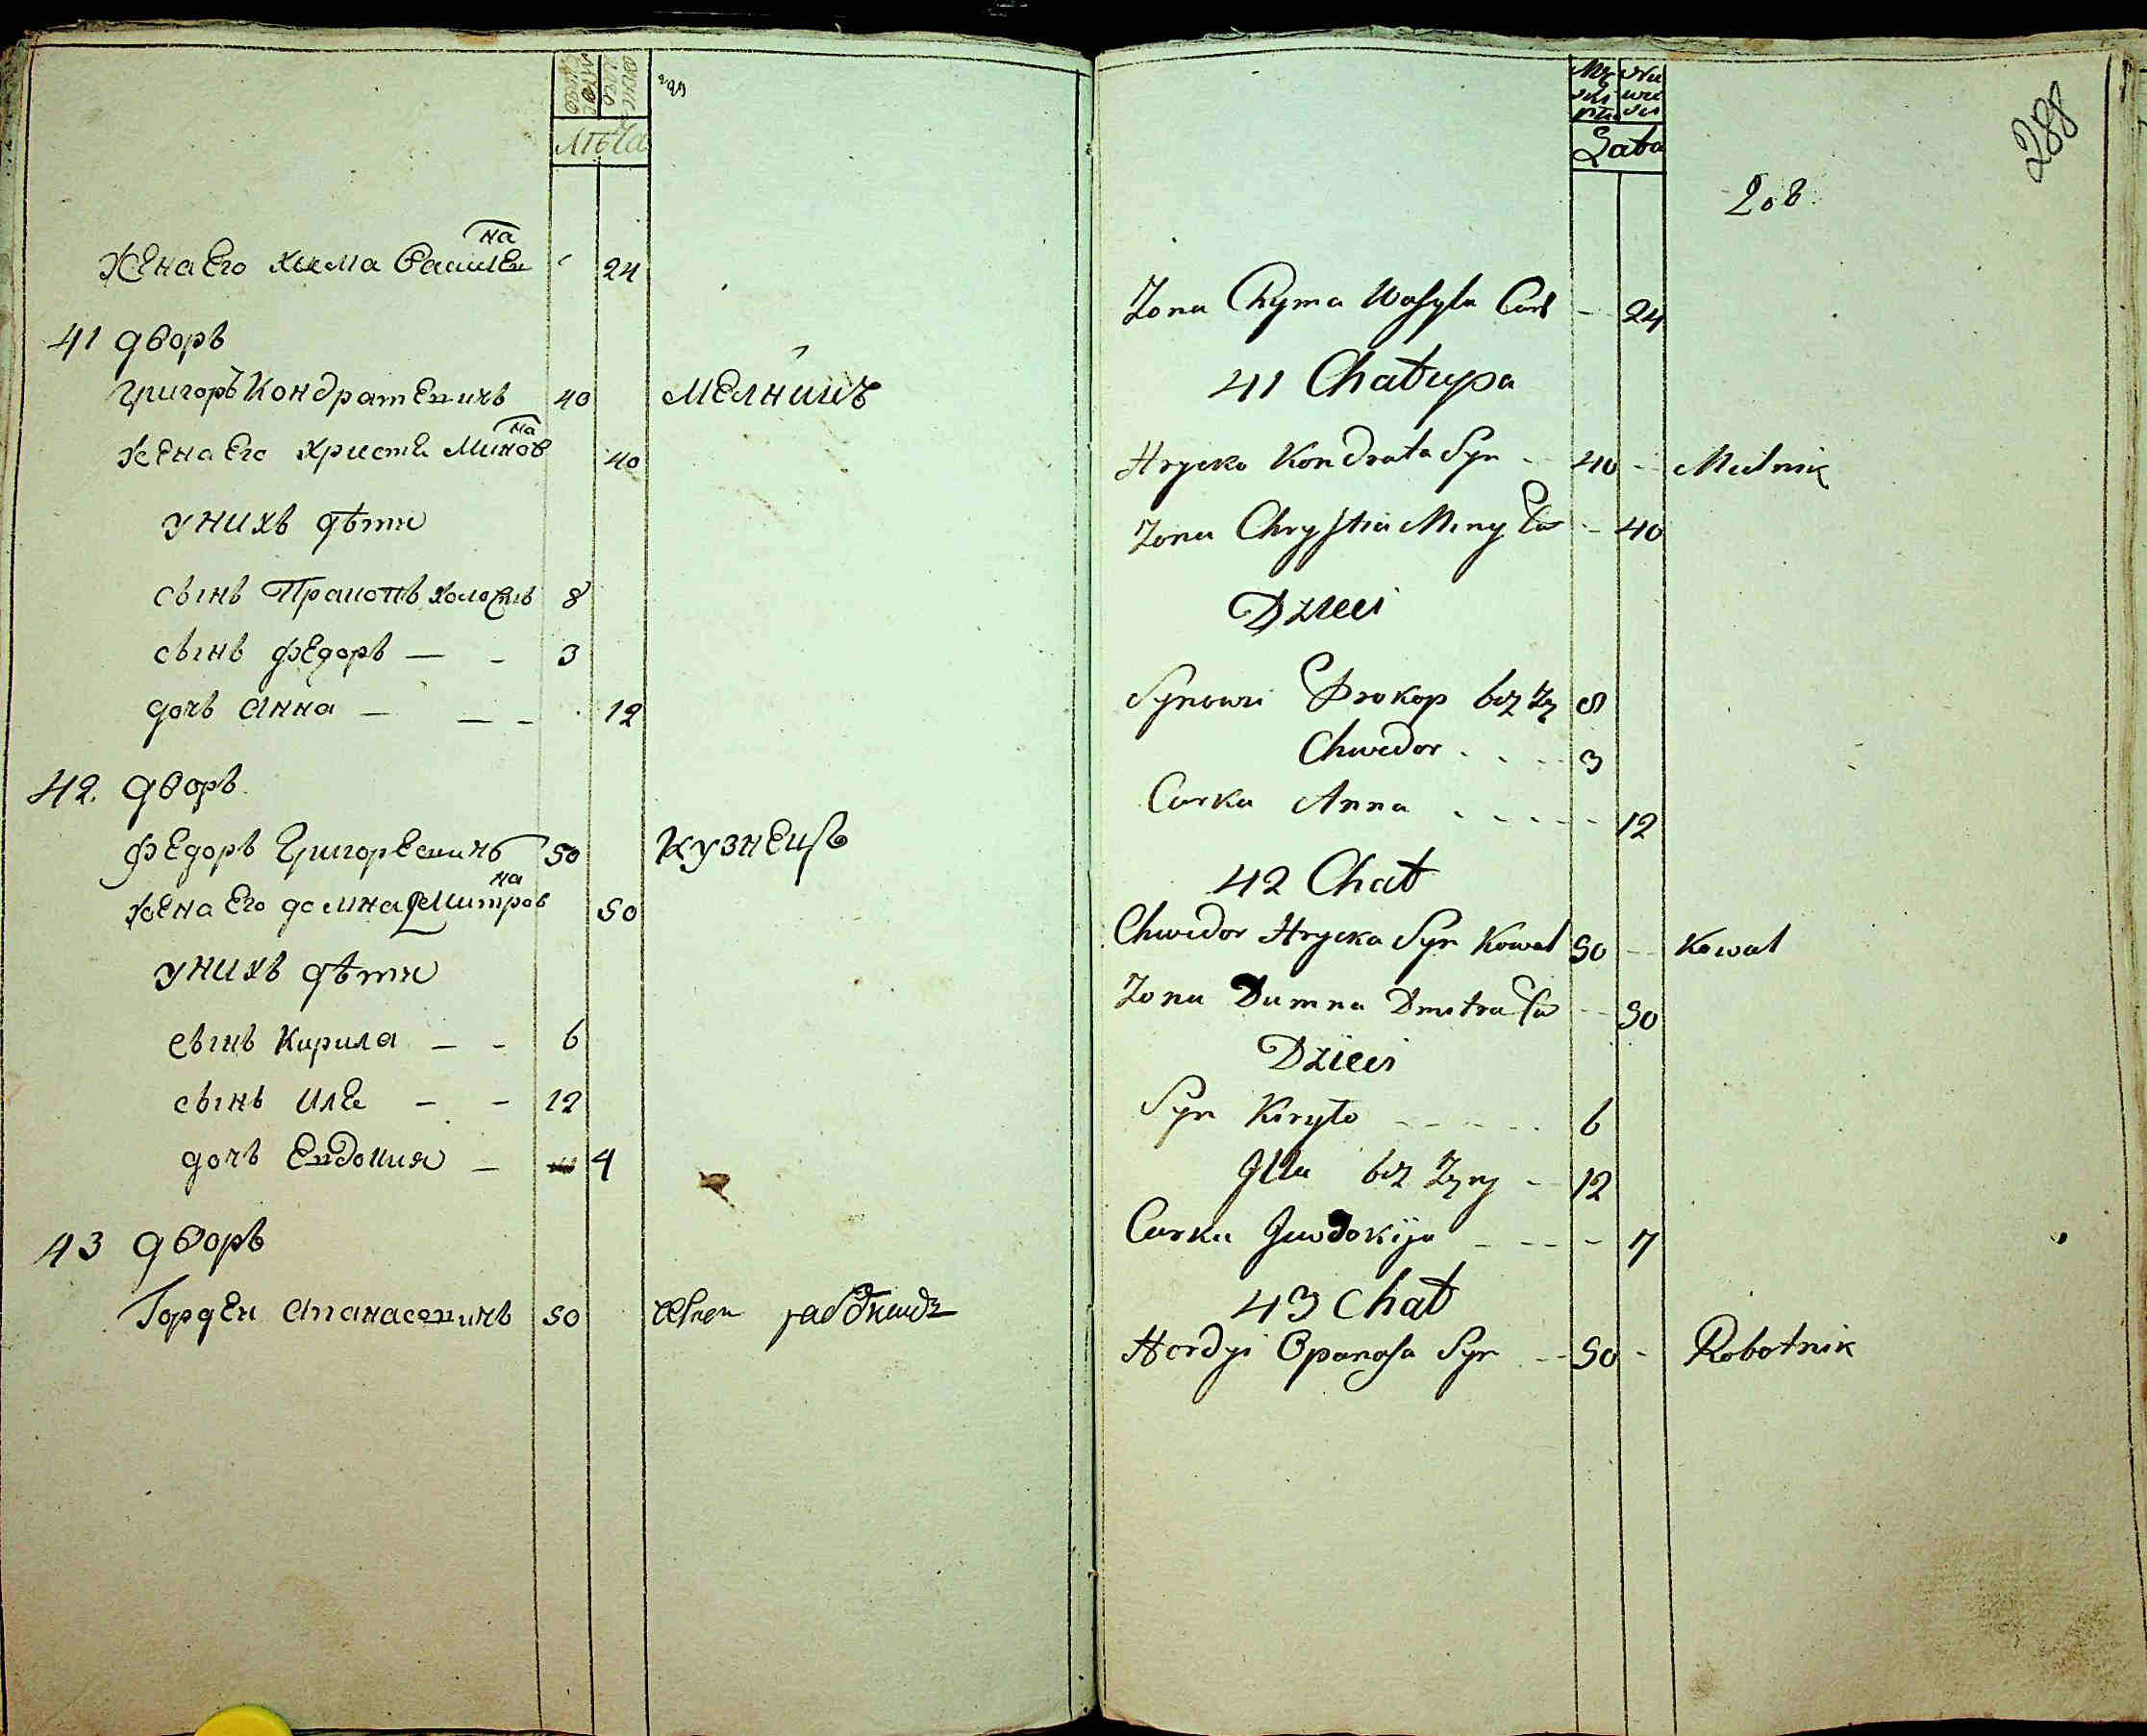 Лѣта
жена Его Хима Василевна 24
41 дворъ
Григоръ Кондратевичъ 40 мелникъ
жена Его Христя Миновна 40
у нихъ дѣти
сынъ Прокопъ холостъ 8
сынъ Федоръ — - 3
дочь Анна — — - 12
42. дворъ
Федоръ Григоревичъ 50 кузнецъ
жена Его домна Дмитровна 50
у нихъ дѣти
сынъ Кирила — - 6
сынъ Иля — - 12
дочь Евдокия — 4
43 дворъ
Гордей Апанасовичъ 50
288
Lata
Żona Chyma Wasyla Cór - 24
41 Chałupa
Hrycko Kondrata Syn - 40 - Mielnik
Żona Chrystia Miny Có - 40
Dzieci
Synowie Prokop bez Żo 8
Chwedor 3
Curka Anna 12
42 Chał
Chwedor Hrycka Syn Kowal 50 - Kowal
Żona Dumna Dmitra Có - 50
Dzieci
Syn Kiryło 6
Illa bez Żony - 12
Curka Juwdokija - 7
43 Chał
Hordyi Opanasa Syn - 50 - Robotnik